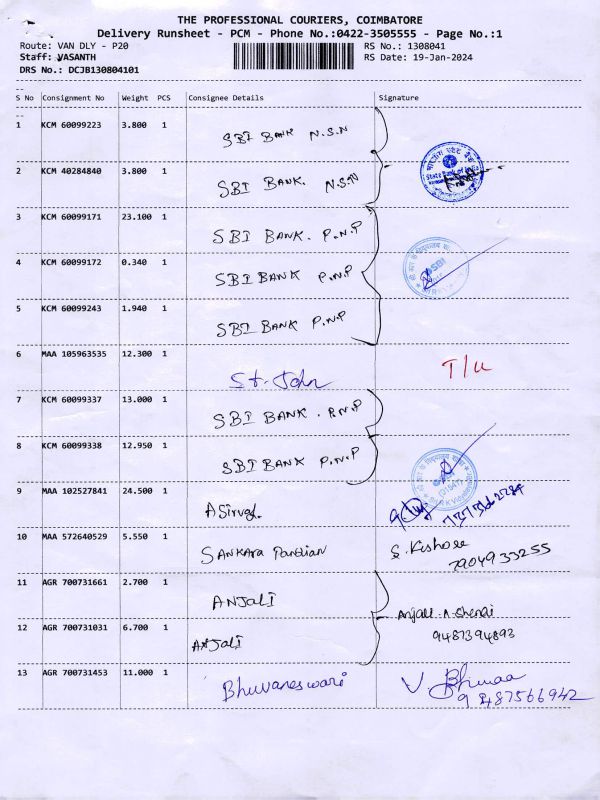 THE PROFESSIONAL COURIERS, COIMBATORE
Delivery Runsheet - PCM - Phone No.:0422-3505555 - Page No.:1
Route: VAN DLY - P20 RS No.: 1308041
Staff: VASANTH RS Date: 19-Jan-2024
DRS No.: DCJB130804101
S No Consignment No Weight PCS Consignee Details Signature
1 KCM 60099223 3.800 1 SBI BANK N.S.N
2 KCM 40284840 3.800 1 SBI BANK. N.S.N
State Bank of India
3 KCM 60099171 23.100 1 SBI BANK. P.N.P
4 KCM 60099172 0.340 1 SBI BANK P.N.P
SBI
5 KCM 60099243 1.940 1 SBI BANK P.N.P
6 MAA 105963535 12.300 1 St. John T/u
7 KCM 60099337 13.000 1 SBI BANK. P.N.P
8 KCM 60099338 12.950 1 SBI BANK P.N.P
9 MAA 102527841 24.500 1
10 MAA 572640529 5.550 1 SANKARA Pandian S. Kishore
7904933255
11 AGR 700731661 2.700 1 ANJALI
Anjali. A. Shenai
12 AGR 700731031 6.700 1 ANJALI 9487394893
13 AGR 700731453 11.000 1 Bhuvaneswari V Bhuvaa
9487566942